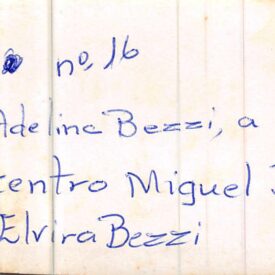 nº, 16
Adelina Bezzi, a
centro Miguel
Elvira Bezzi